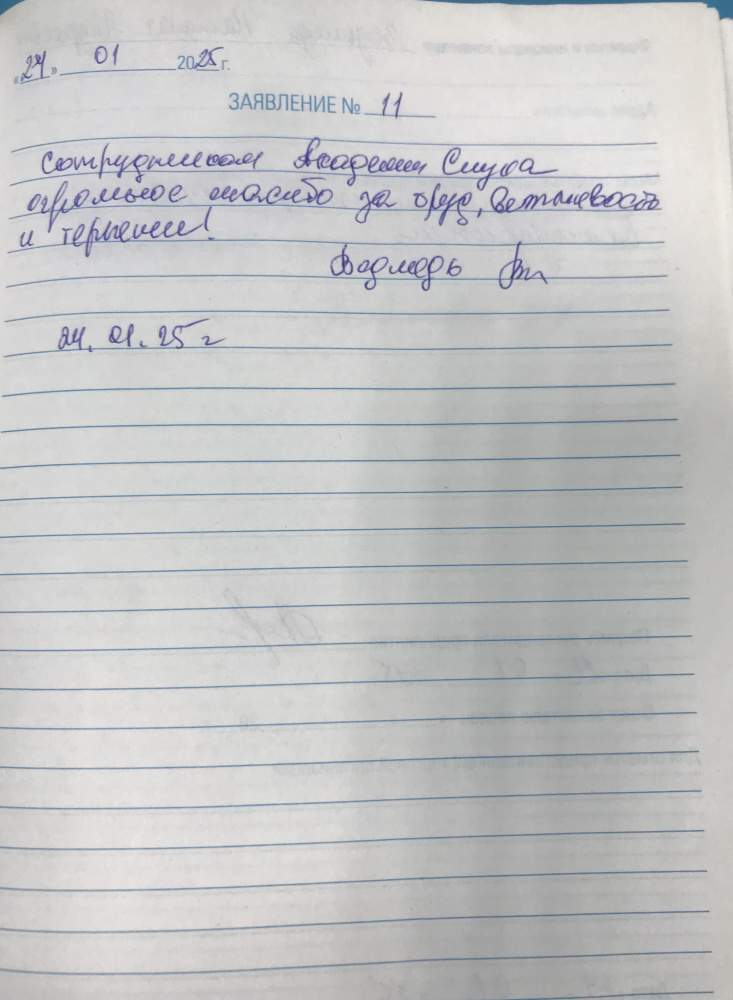 «24» 01 2025 г.
ЗАЯВЛЕНИЕ № 11
Сотрудникам Академии Слуха
огромное спасибо за труд, вежливость
и терпение!
Ведмедь
24.01.25 г